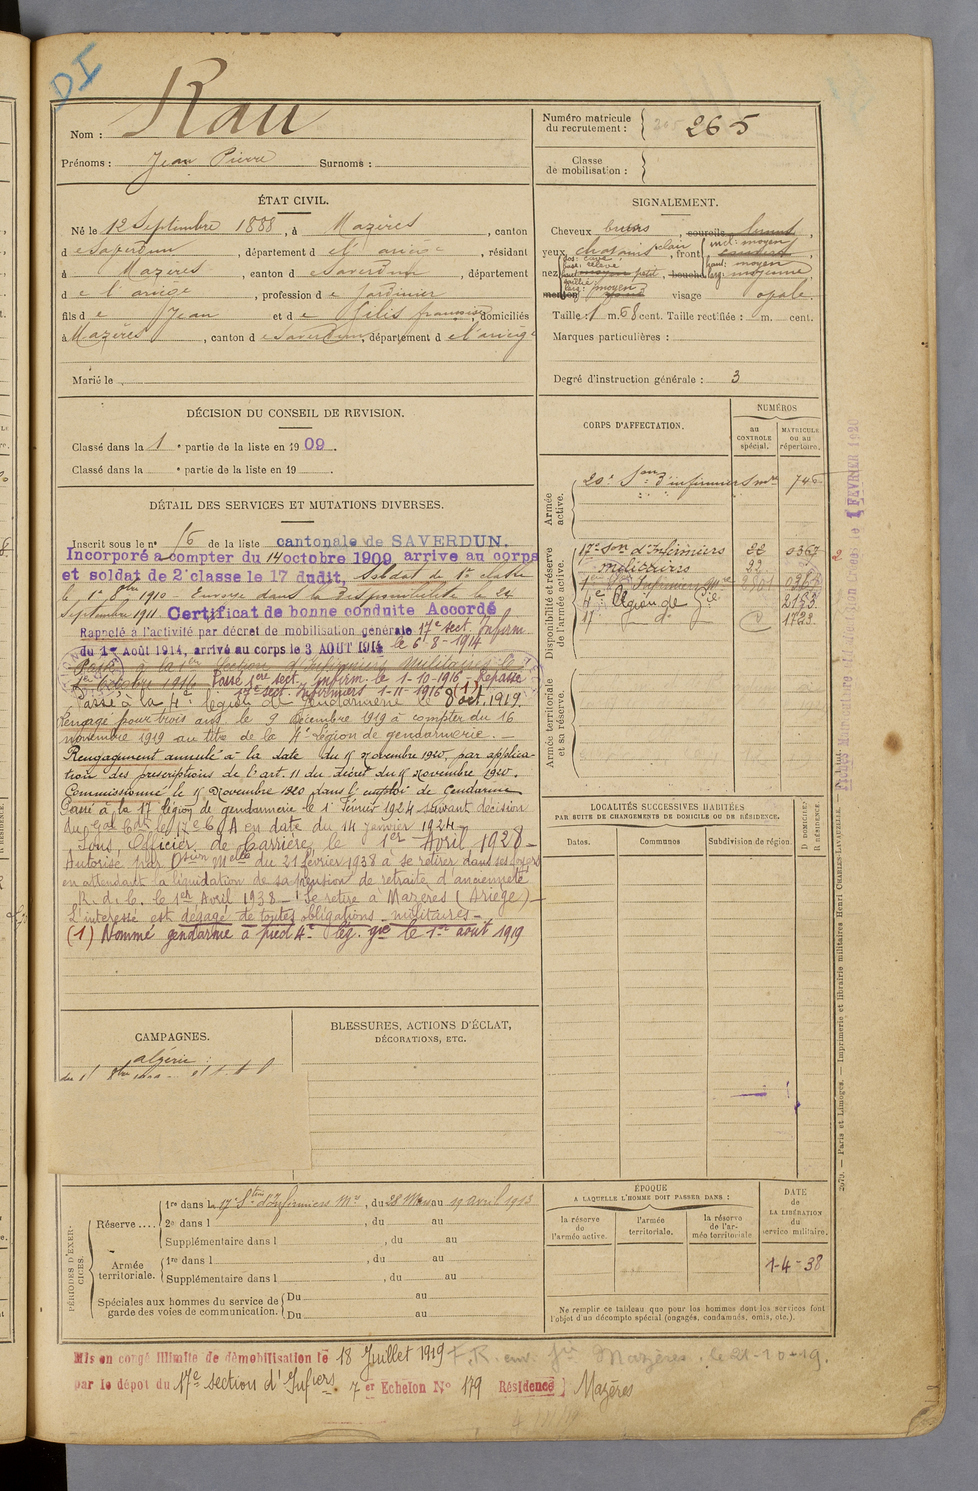 DI
Nom : Rau
Prénoms : Jean Pierre Surnoms :
Numéro matricule du recrutement : 265
Classe de mobilisation :
ÉTAT CIVIL.
Né le 12 Septembre 1888, à Mazères, canton
d e Saverdun, département d e l'ariège, résidant
à Mazères, canton d e Saverdun, département
d e l'ariège, profession d e Jardinier
fils d e Jean et d e Gilis françoise, domiciliés
à Mazères, canton d e Saverdun, département d e l'ariège
Marié le
SIGNALEMENT.
Cheveux bruns, sourcils bruns,
yeux chatains clair, front incl: moyen
haut: moyen
larg: moyenne
nez dos: cave
base: relevé
haut: moyen petit, bouche
saillie
larg: moyen
menton visage ovale.
Taille : 1 m. 68 cent. Taille rectifiée : m. cent.
Marques particulières :
Degré d'instruction générale : 3
DÉCISION DU CONSEIL DE REVISION.
Classé dans la 1 e partie de la liste en 1909.
Classé dans la e partie de la liste en 19 .
CORPS D'AFFECTATION.
NUMÉROS
au CONTROLE spécial.
MATRICULE ou au répertoire.
Armée active.
20e Son d'infirmiers Mres 746
Disponibilité et réserve de l'armée active.
17e Son d'Infirmiers 22 0367
militaires 22
4e Légion de Gie 2193
17 d° d° 1723
2
Armée territoriale et sa réserve.
DÉTAIL DES SERVICES ET MUTATIONS DIVERSES.
Inscrit sous le n° 16 de la liste cantonale de SAVERDUN.
Incorporé à compter du 14 octobre 1909 arrivé au corps
et soldat de 2e classe le 17 dudit, Soldat de 1re classe
le 1er 8bre 1910 - Envoyé dans la disponibilité le 24
Septembre 1911. Certificat de bonne conduite Accordé
Rappelé à l'activité par décret de mobilisation générale 17e sect. Infirm.
du 1er Août 1914, arrivé au corps le 3 AOUT 1914 le 6-8-1914
Passé à la 1re Section d'Infirmiers Militaires le
1er Octobre 1916 Passé 1ère sect. Infirm le 1-10-1916 - Repassé
17e sect. Infirmiers 1-11-1916 (1)
Passé à la 4e légion de Gendarmerie le 8 oct. 1919.
Rengagé pour trois ans le 9 décembre 1919 à compter du 16
novembre 1919 au titre de la 4e légion de gendarmerie. -
Rengagement annulé à la date du 15 novembre 1920, par applica-
tion des prescriptions de l'art. 11 du décret du 15 novembre 1920.
Commissionné le 15 Novembre 1920 dans l'emploi de Gendarme
Passé à la 17e légion de gendarmerie le 1er Février 1924 suivant décision
du Gal Cdt le 17e C.A en date du 14 janvier 1924.
Sous Officier de Carrière le 1er Avril 1928 -
Autorisé par Dsion Melle du 21 février 1938 à se retirer dans ses foyers
en attendant la liquidation de sa pension de retraite d'ancienneté
R. d. c. le 1er Avril 1938 - Se retire à Mazères (Ariège) -
L'intéressé est dégagé de toutes obligations militaires -
(1) Nommé gendarme à pied 4e lég. gie le 1er août 1919
LOCALITÉS SUCCESSIVES HABITÉES
PAR SUITE DE CHANGEMENTS DE DOMICILE OU DE RÉSIDENCE.
Dates.
Communes
Subdivision de région.
D DOMICILE. R RÉSIDENCE.
CAMPAGNES.
algérie :
BLESSURES, ACTIONS D'ÉCLAT,
DÉCORATIONS, ETC.
PÉRIODES D'EXERCICES.
Réserve .... 1re dans la 17e Stion d'Infirmiers Mres, du 28 Mars au 19 avril 1913
2e dans l , du au
Supplémentaire dans l , du au
Armée territoriale. 1re dans l , du au
Supplémentaire dans l , du au
Spéciales aux hommes du service de garde des voies de communication. Du au
Du au
ÉPOQUE
A LAQUELLE L'HOMME DOIT PASSER DANS :
la réserve de l'armée active.
l'armée territoriale.
la réserve de l'armée territoriale
DATE de LA LIBÉRATION du service militaire.
1-4-38
Ne remplir ce tableau que pour les hommes dont les services font
l'objet d'un décompte spécial (engagés, condamnés, omis, etc.).
Mis en congé illimité de démobilisation le 18 Juillet 1919 F.R. env. Gie Mazères le 21-10-19.
par le dépôt du 17e section d'Infiers. 7 er Echelon N° 179 Résidence Mazères
2079. — Paris et Limoges. — Imprimerie et librairie militaires Henri CHARLES-LAVAUZELLE.